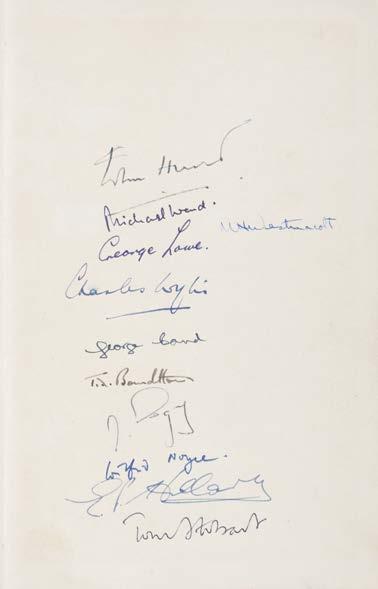 John Hunt
Michael Ward.
M H Westmacott
George Lowe.
Charles Wylie
George Band
T.D. Bourdillon
A. Gregory
Wilfrid Noyce.
E P Hillary
Tom Stobart